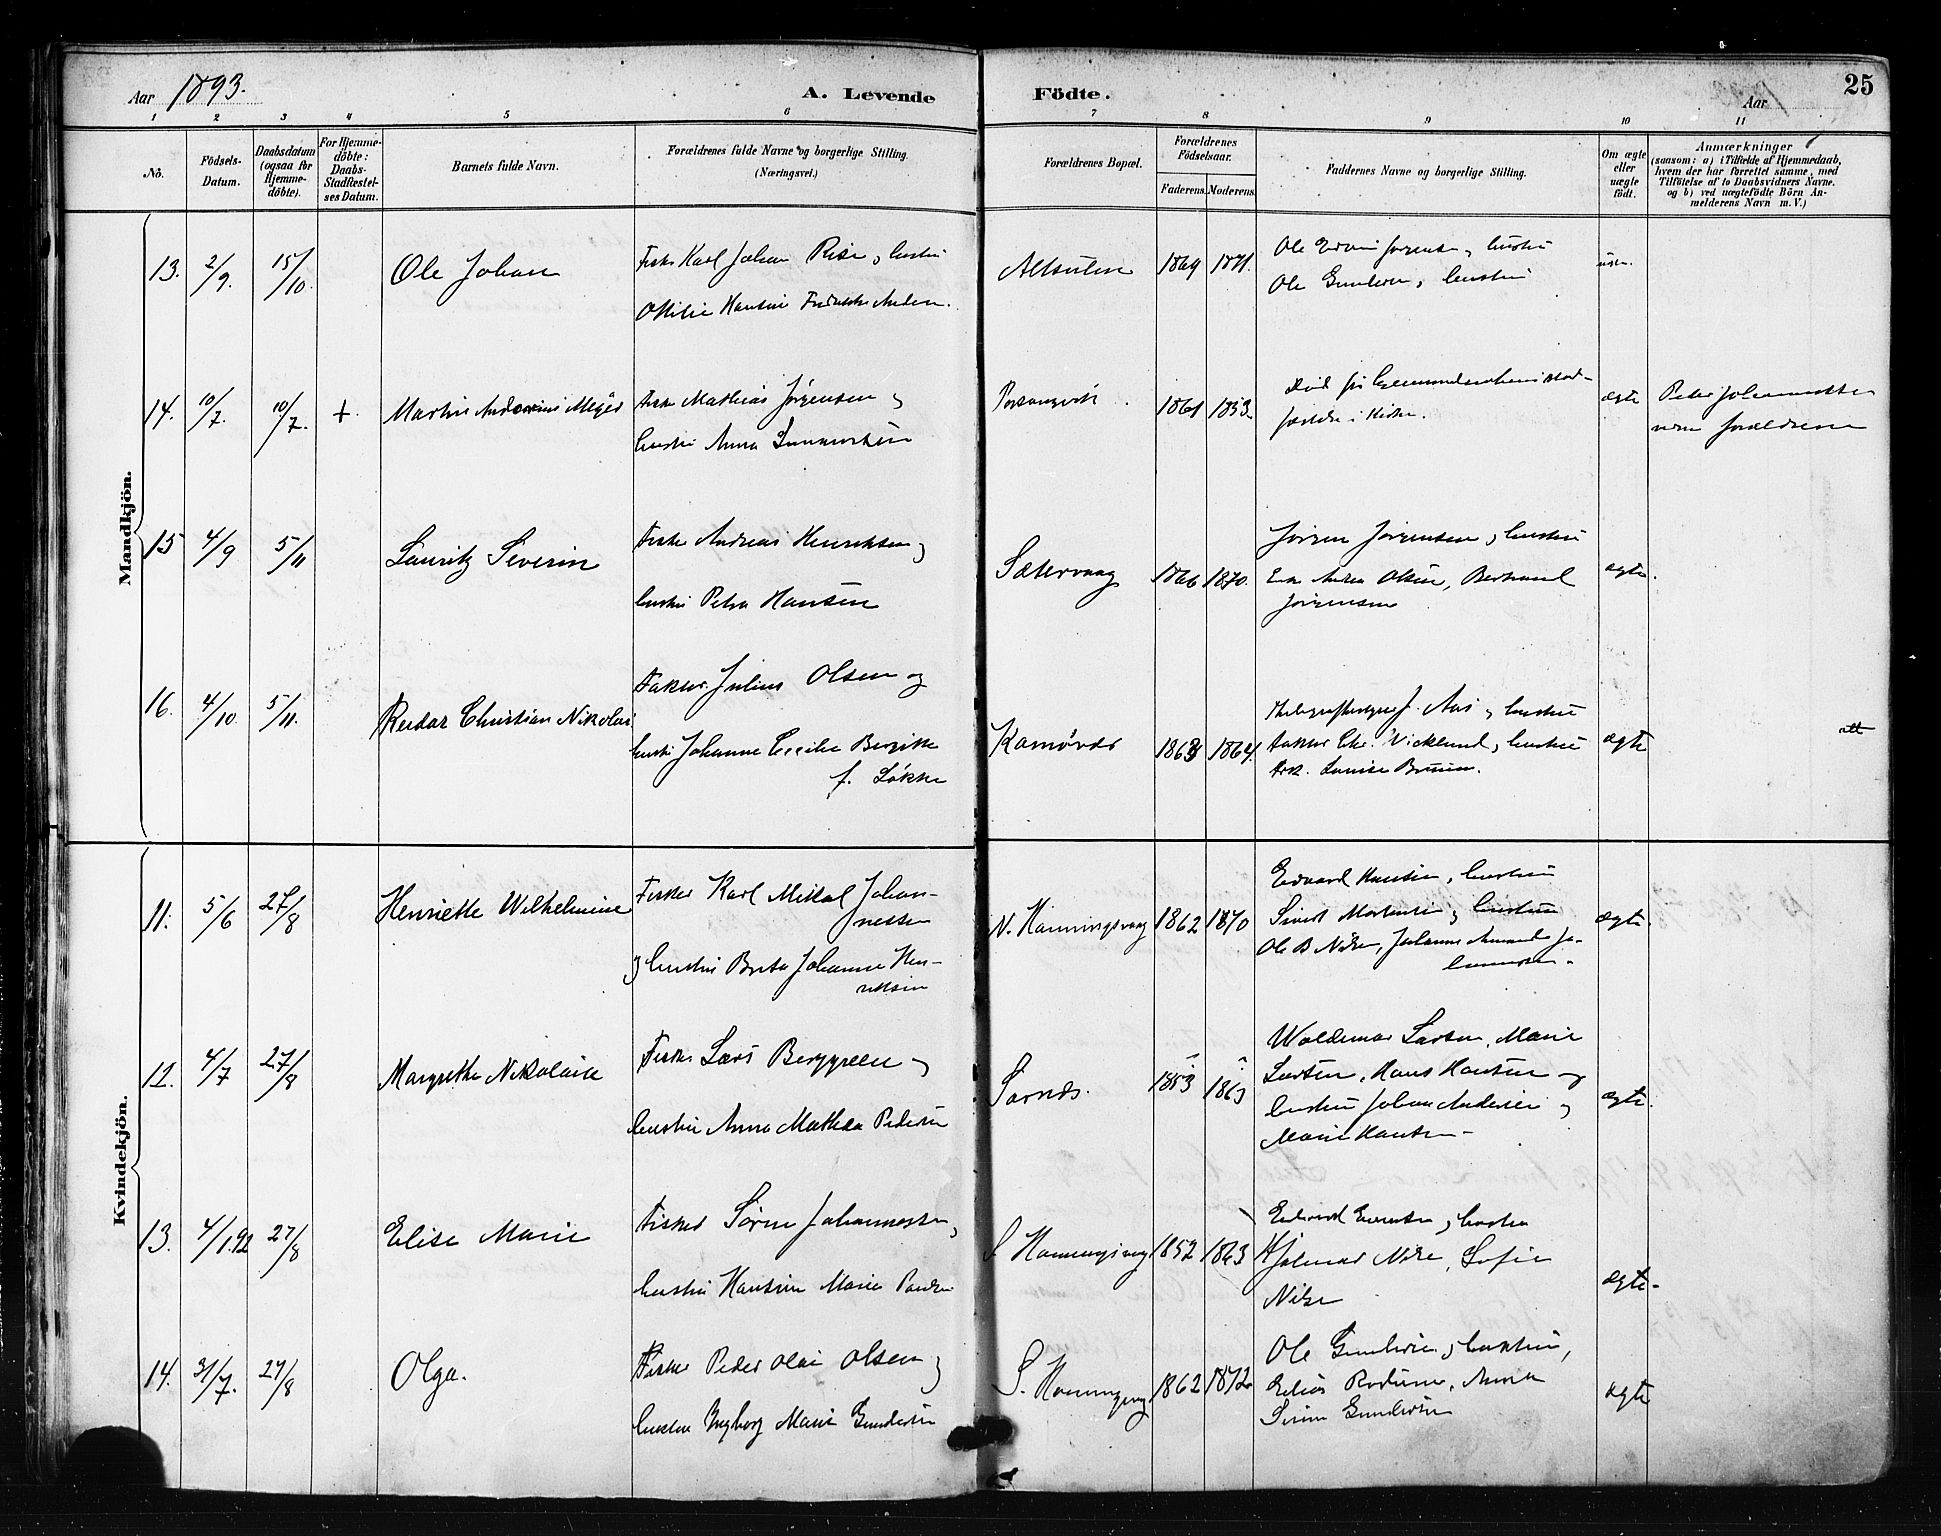 25
Aar 1893.
A. Levende Födte.
Aar
1 2 3 4 5 6 7 8 9 10 11
No.
Födsels-Datum.
Daabsdatum (ogsaa for Hjemme-döbte).
For Hjemme-döbte: Daabs-Stadfæstel-ses Datum.
Barnets fulde Navn.
Forældrenes fulde Navne og borgerlige Stilling. (Næringsvei.)
Forældrenes Bopæl.
Forældrenes Födselsaar.
Faderens. Moderens.
Faddernes Navne og borgerlige Stilling.
Om ægte eller uægte födt.
Anmærkninger
(saasom: a) i Tilfælde af Hjemmedaab,
hvem der har forrettet samme, med
Tilföielse af to Daabsvidners Navne,
og b) ved uægtefödte Börn An-
melderens Navn m. V.)
Mandkjön.
13. 2/9. 15/10. Ole Johan
Fisker Karl Johan
Hansine
1871.
Ole Gundersen, hustru
14. 10/7. 10/7. + Martin
Fisker Mathias Jørgensen og
hustru Anna
1853.
ægte
forældrene
15 4/9 5/11 Lauritz Severin
Fisker Andreas Henriksen og
hustru Petra Hansen
Sætervaag 1866 1870.
Jörgen Jörgensen, hustru
Olsen,
Jörgensen
ægte.
16. 4/10. 5/11. Reidar Christian Nikolai
Faktor Julius Olsen og
hustru Johanne Cecilie Bergitte
f. Løkke
Kamøvær 1864.
J. Aas, hustru
faktor Chr. Wicklund, hustru
Frk. Louise Bruun.
ægte
Kvindekjön.
11. 5/6 27/8 Henriette Wilhelmine
Fisker Karl Mikal Johan-
nessen
og hustru Berta Johanne Hen-
riksen
N. Honningsvaag 1862 1870
Edvard Hansen, hustru
Sivert Mortensen og hustru
Ole B Nilsen, Johanne
ægte.
12. 4/7 27/8 Margrethe Nikolaise
Fisker Lars Berggreen og
hustru Anna Mathea Pedersen
Sarnes. 1853 1863
Waldemar Larsen, Marie
Larsen, Hans Hansen og
hustru Johan Andersen og
Marie Hansen
ægte.
13. 4/1.92 27/8 Elise Marie
Fisker Sören Johannessen,
hustru Hansine Marie
S. Honningsvaag 1852 1863
hustru
Hjalmar Nilsen, Sofie
Nilsen
ægte.
14. 31/7. 27/8 Olga.
Fisker Peder Olai Olsen og
hustru Ingeborg Marie Gundersen
S. Honningsvaag 1862 1872
Ole Gundersen, hustru,
Anna
Gundersen
ægte